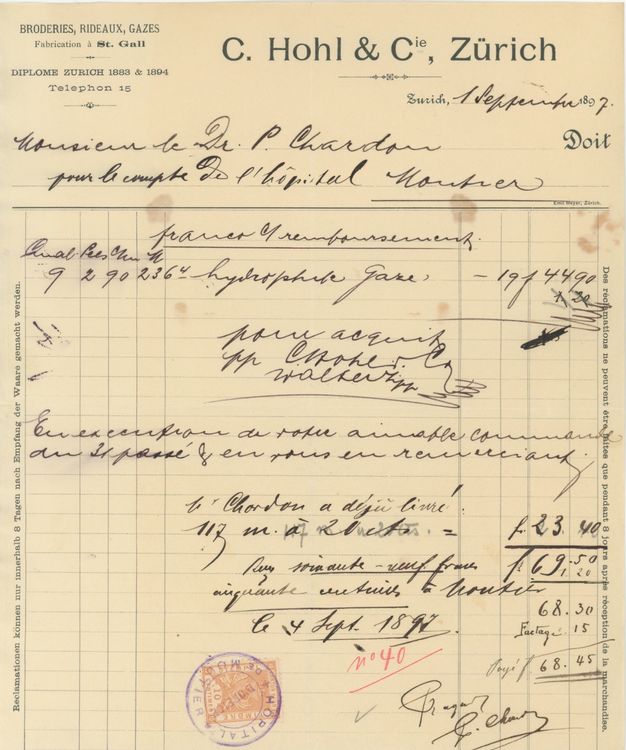 BRODERIES, RIDEAUX, GAZES
Fabrication à St. Gall
DIPLOME ZURICH 1883 & 1894
Telephon 15
C. Hohl & Cie, Zürich
Zurich, 1 Septembre 1897.
Monsieur le Dr. P. Chardon
Doit
pour le compte de l'hôpital Moutier
Emil Meyer, Zürich.
franco c/ remboursement.
Qual. Pces
9 2 90 236 hydrophile Gaze, – 19 f 44 90
1 20
pour acquit
pp C. Hohl & Co
En execution de votre aimable commande
du 31 passé & en vous en remerciant.
Chardon a déjà livré:
117 m. à 20 cts = fr. 23.40
Reçu soixante-neuf francs fr. 69.50
1.20
cinquante centimes à Moutier
68.30
le 4 Sept. 1897.
Factage 15
no 40
Payé 68.45
HOPITAL DE MOUTIER
Chardon
Reclamationen können nur innerhalb 8 Tagen nach Empfang der Waare gemacht werden.
Des réclamations ne peuvent être faites que pendant 8 jours après réception de la marchandise.